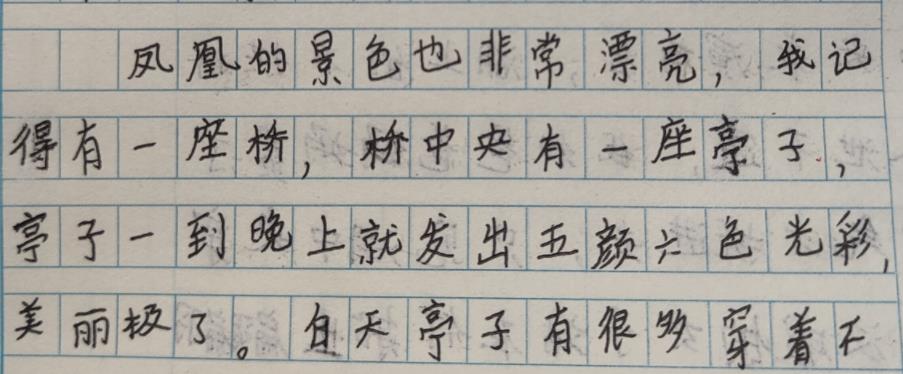 凤凰的景色也非常漂亮，我记
得有一座桥，桥中央有一座亭子，
亭子一到晚上就发出五颜六色光彩，
美丽极了。白天亭子有很多穿着不